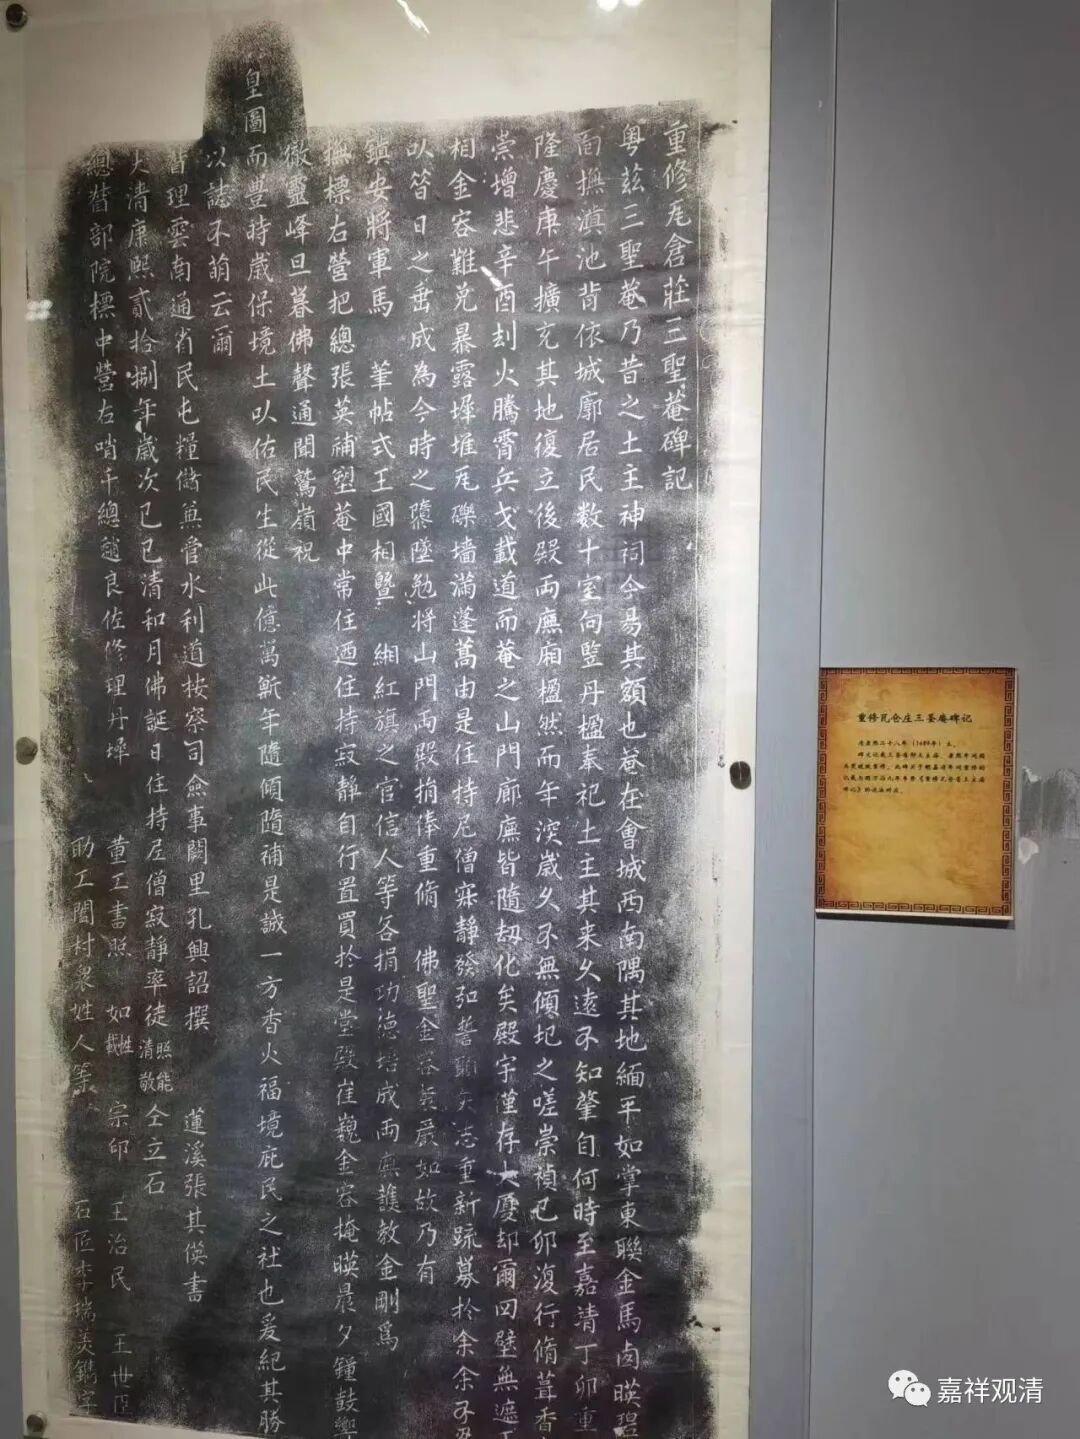 重修瓦倉莊三聖菴碑記
粵茲三聖菴乃昔之土主神祠今易其額也菴在會城西南隅其地緬平如掌東聯金馬面暎碧
面撫滇池背依城廓居民数十室向豎丹楹奉祀土主其来久遠不知肇自何時至嘉靖丁卯重
隆慶庚午擴充其地復立後殿兩廡廂楹然而年深歲久不無傾圯之嗟崇禎己卯復行脩葺香
崇增悲辛酉刦火騰霄兵戈載道而菴之山門廊廡皆隨刼化矣殿宇僅存大廈却爾四壁無遮
相金容難免暴露墀堆瓦礫墙滿蓬蒿由是住持尼僧寂靜發弘誓願矢志重新疏募於余余不忍
以昝日之垂成為今時之隳墜勉將山門兩殿捐俸重脩 佛聖金容莊嚴如故乃有
鎮安將軍馬 筆帖式王國相暨 緗紅旗之官信人等各捐功德培成兩廡護教金剛爲
撫標右營把總張英補塑菴中常住迺住持寂靜自行置買於是堂殿崔巍金容掩暎晨夕鐘鼓響
徹靈峰旦暮佛聲通聞鷲嶺祝
皇圖而豐時歲保境土以佑民生從此億萬斯年隨傾隨補是誠一方香火福境庇民之社也爰紀其勝
以誌不萌云爾
督理雲南通省民屯糧儲兼管水利道按察司僉事闕里孔興詔撰 蓮溪張其僕書
大清康熙貳拾捌年歲次己巳清和月佛誕日住持尼僧寂靜率徒 照能 清敬 仝立石
總督部院標中營左哨千總趙良佐修理丹墀 董工書照 如 性 載 宗卬 王治民 王世臣
助工閤村衆姓人等 石匠李瑞美鐫字
重修瓦仓庄三圣庵碑记
清康熙二十八年（1689年）立。
嘉祥观清